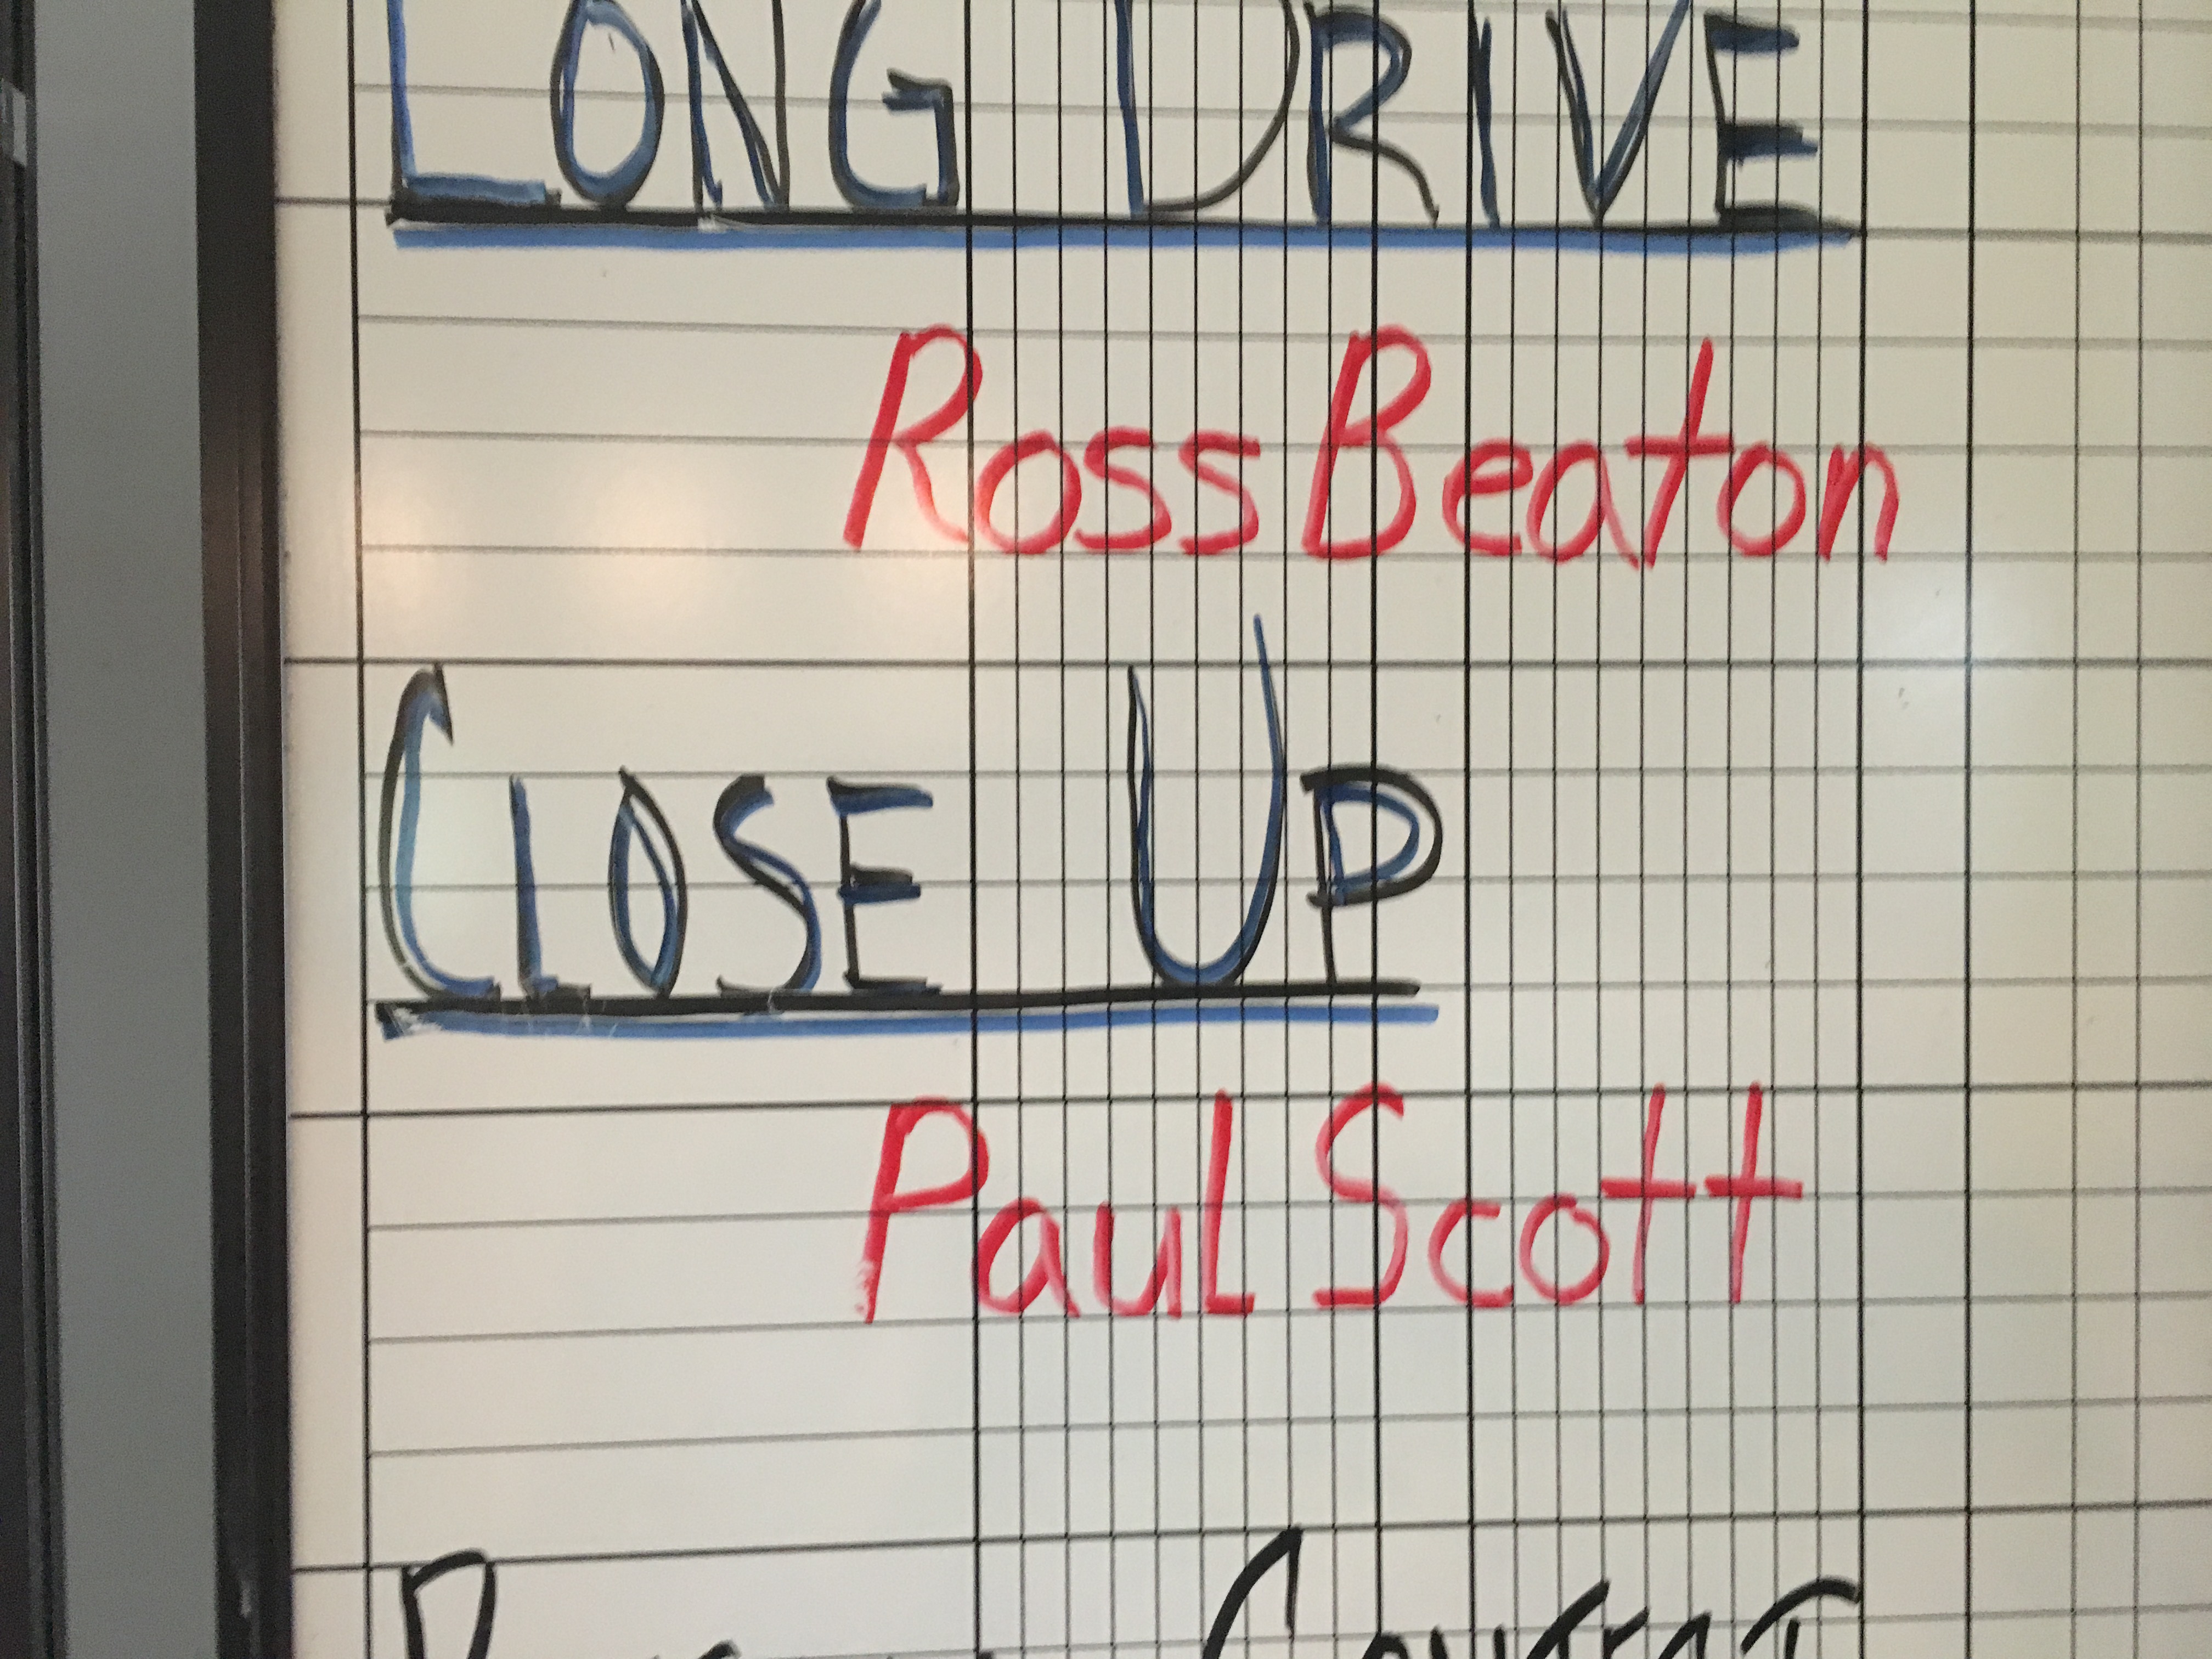 LONG DRIVE
Ross Beaton
CLOSE UP
Paul Scott